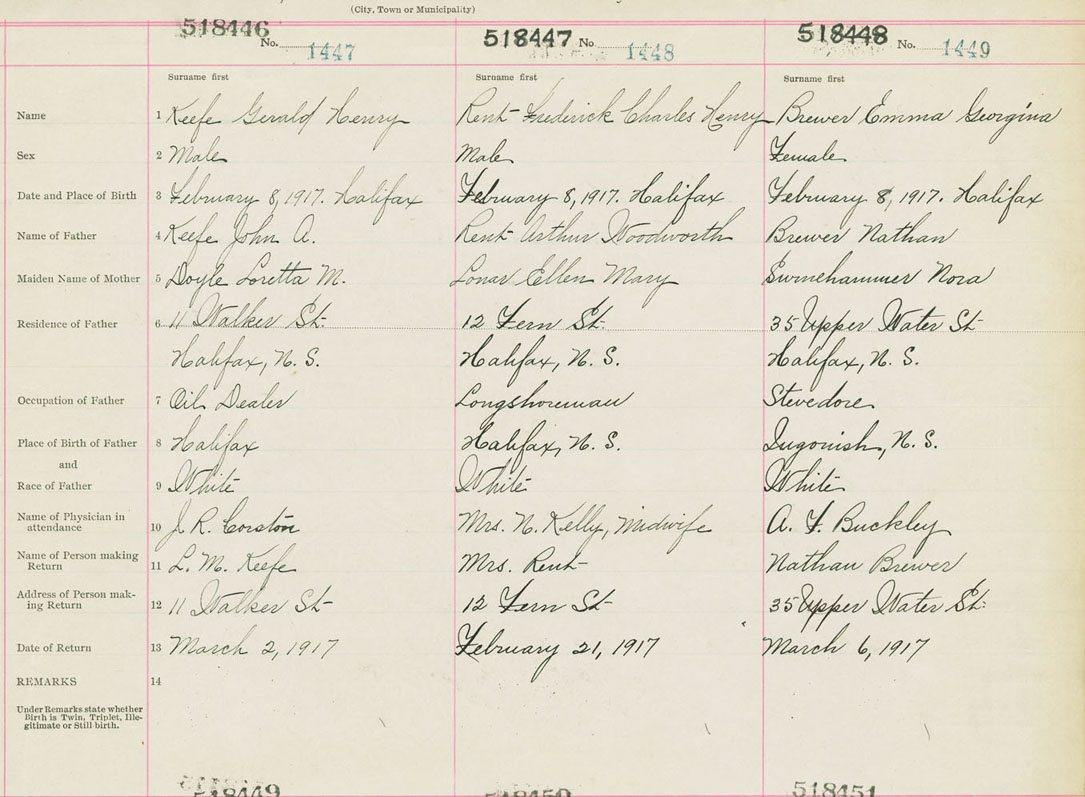 (City, Town or Municipality)
518446 No. 1447 518447 No. 1448 518448 No. 1449
Surname first Surname first Surname first
Name 1 Keefe Gerald Henry Rent Frederick Charles Henry Brewer Emma Georgina
Sex 2 Male Male Female
Date and Place of Birth 3 February 8, 1917. Halifax February 8, 1917. Halifax February 8, 1917. Halifax
Name of Father 4 Keefe John A. Rent Arthur Woodworth Brewer Nathan
Maiden Name of Mother 5 Doyle Loretta M. Lonar Ellen Mary Swinehammer Nora
Residence of Father 6 11 Walker St. 12 Fern St. 35 Upper Water St
Halifax, N. S. Halifax, N. S. Halifax, N. S.
Occupation of Father 7 Oil Dealer Longshoreman Stevedore
Place of Birth of Father 8 Halifax Halifax, N. S. Ingonish, N. S.
and
Race of Father 9 White White White
Name of Physician in
attendance 10 J. R. Corston Mrs. N. Kelly, Midwife A. F. Buckley
Name of Person making
Return 11 L. M. Keefe Mrs. Rent Nathan Brewer
Address of Person mak-
ing Return 12 11 Walker St 12 Fern St 35 Upper Water St.
Date of Return 13 March 2, 1917 February 21, 1917 March 6, 1917
REMARKS 14
Under Remarks state whether
Birth is Twin, Triplet, Ille-
gitimate or Still birth.
518449 518450 518451